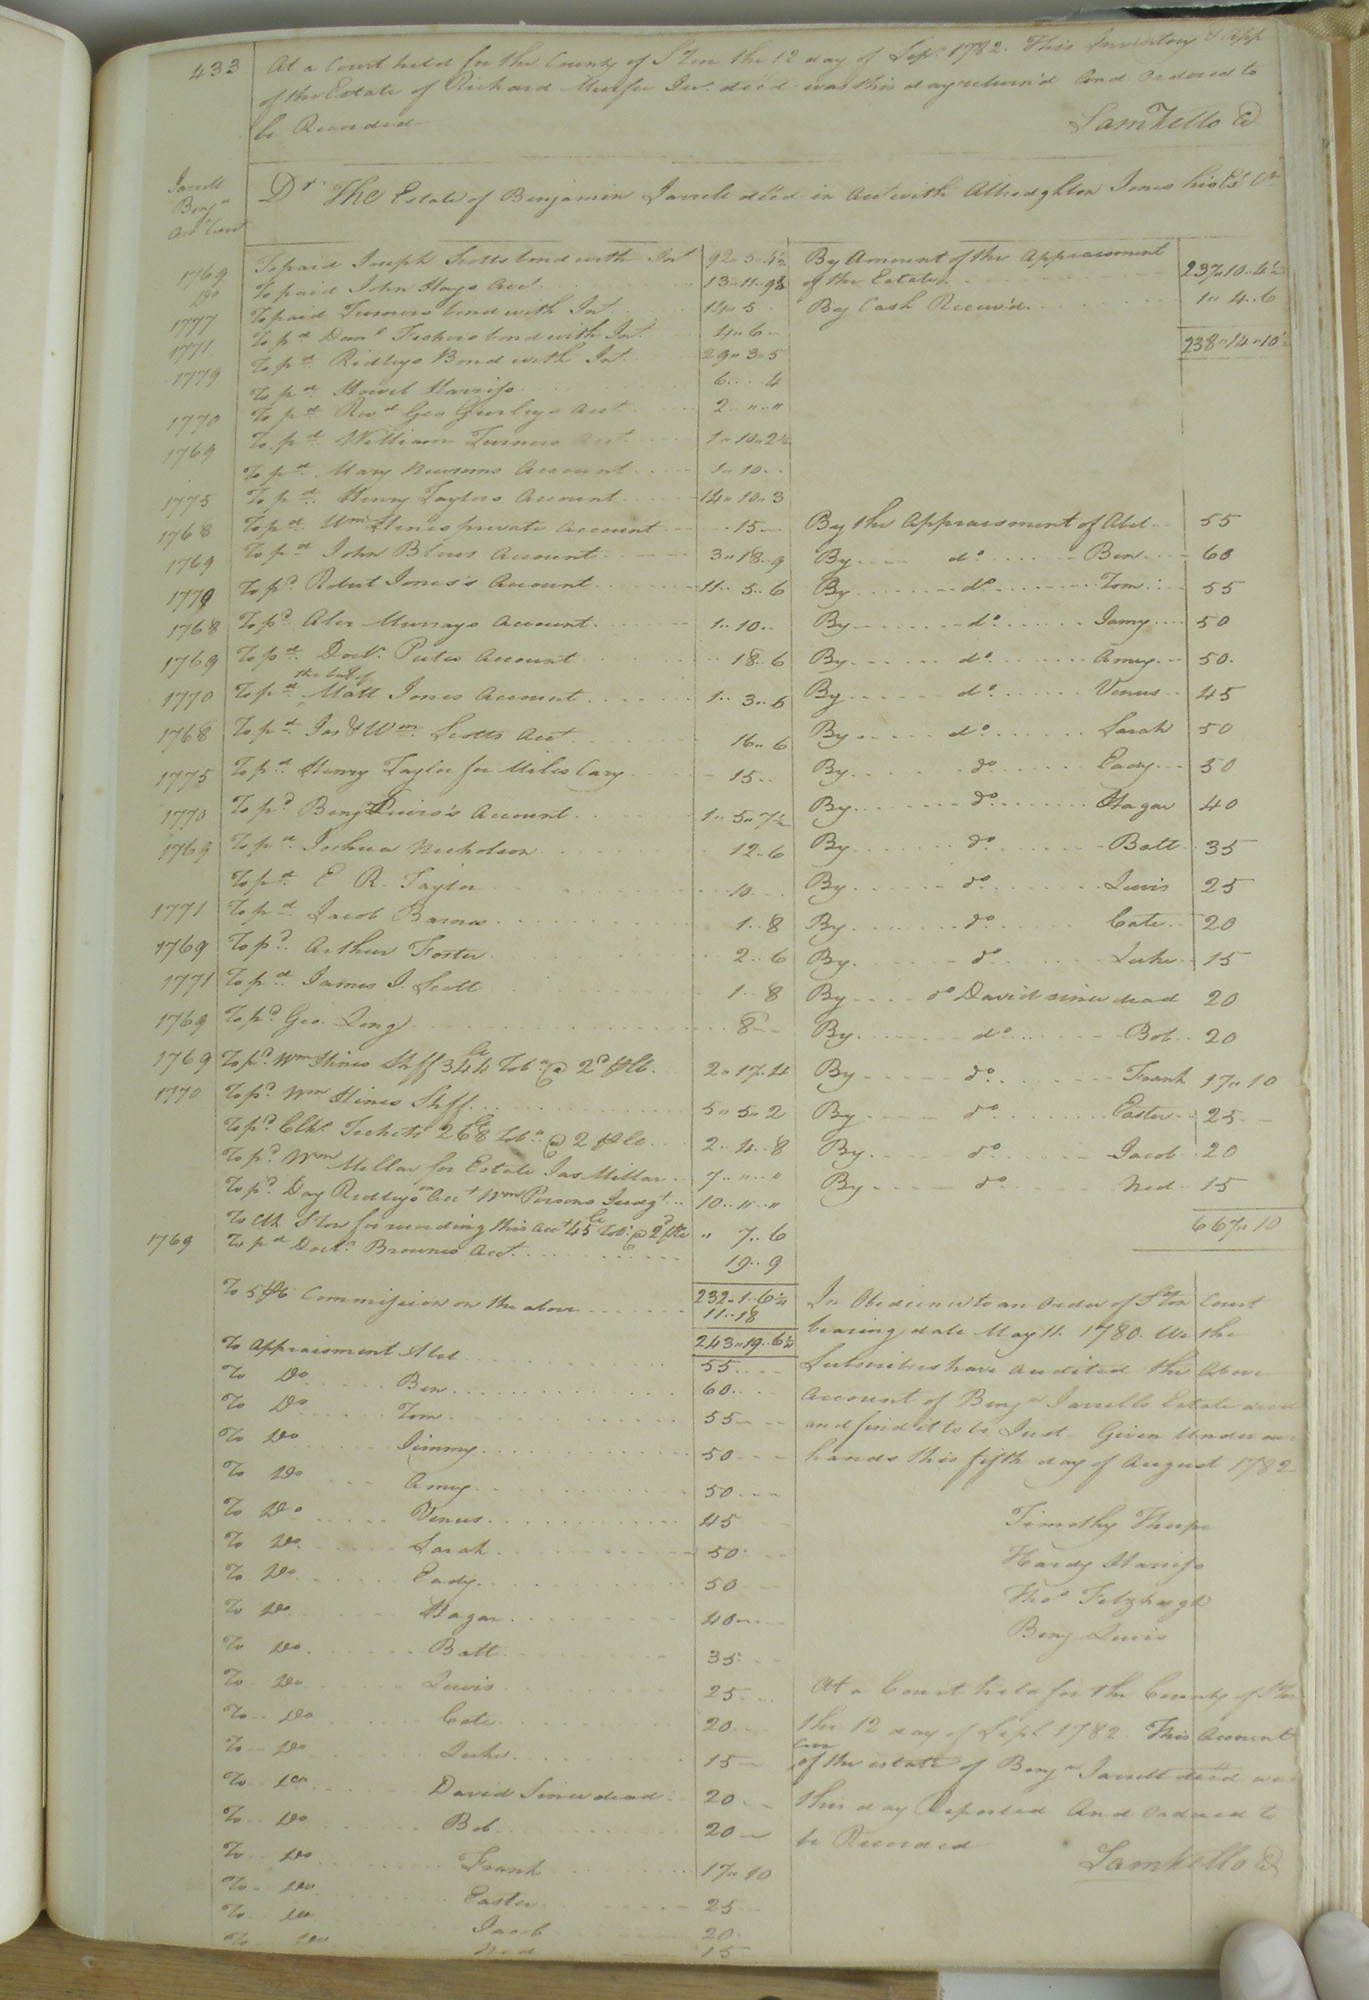 433
At a Court held for the County of S°ton the 12 day of Sept. 1782. This Inventory & App
of the Estate of Richard Murfee Jur. decd was this day return'd and ordered to
be Recorded
Sam Kello C
Jarrell
Benja
Acct Curt
Dr. The Estate of Benjamin Jarrell decd in Acct with Albridghton Jones his Exr Cr
1769 To paid Joseph Scotts bond with Int 92..5..4½
Do To paid John Hays Acct. 13..11..9¾
1777 To paid Turners bond with Int 14..5
1771 To pd Danl Fishers bond with Int. 4..6
1779 To pd Ridleys Bond with Int. 29..3..5
To pd Howel Harriss 6....4
1770 To pd Revd Geo Gurleys Acct 2..""..""
1769 To pd William Turners Acct. 1..10..2½
To pd Mary Newsoms Account 1..10..
1775 To pd Henry Taylors Account 14..10..3
1768 To pd Wm Hines private Account 15
1769 To pd John Blows Account 3..18..9
1770 To pd Robert Jones's Account 11..5..6
1768 To pd Alex Murrays Account 1..10..
1769 To pd Doctr. Peter Account 18..6
the Est of
1770 To pd Matt Jones Account 1..3..6
1768 To pd Jas & Wm Scotts Acct 16..6
1775 To pd Henry Taylor for Miles Cary 15
1770 To pd Benj Lewis's Account 1..5..7½
1769 To pd Joshua Nicholson 12..6
To pd E R. Taylor 10
1771 To pd Jacob Barnes 1..8
1769 To pd Arthur Foster 2..6
1771 To pd James J. Scott 1..8
1769 To pd Geo. Long 8
1769 To pd Wm Hines Shff 344 Tobo @ 2d 2..17..4
1770 To pd Wm Hines Shff 5..5..2
To pd Clks Tickets 268 Tobo @ 2 2..4..8
To pd Wm Millar for Estate Jas Millar 7..""..""
To pd Day Ridleys on Acct Wm Persons Judgt 10..""..""
To Clk S°ton for recording this acct 45 Tob: @ 2d ".. 7..6
1769 To pd Doctr. Brownes Acct. 19..9
232..1..6¼
To 5 Commission on the above 11..18
243..19..6¼
To Appraisment Abel 55
To Do Ben 60
To Do Tom 55
To Do Jimmy 50
To Do Amey 50
To Do Venus 45
To Do Sarah 50
To Do Eady 50
To Do Hagar 40
To Do Batt 35
To Do Lewis 25
To Do Cate 20
To Do Luke 15
To Do David Since dead 20
To Do Bob 20
To Do Frank 17..10
To Do Easter 25
To Do Jacob 20
To Do Ned 15
By Amount of the Appraisment
of the Estate 237..10..4½
By Cash Receiv'd 1..4..6
238..14..10½
By the Appraisment of Abel 55
By do Ben 60
By do Tom 55
By do Jamy 50
By do Amey 50.
By do Venus 45
By do Sarah 50
By do Eady 50
By do Hagar 40
By do Batt 35
By do Lewis 25
By do Cate 20
By do Luke 15
By do David since dead 20
By do Bob 20
By do Frank 17..10
By do Easter 25
By do Jacob 20
By do Ned 15
667..10
In Obedience to an order of S°ton Court
bearing date May 11. 1780. We the
Subscribers have audited the above
Account of Benja Jarrells Estate decd
and find it to be Just Given Under our
hands this fifth day of August 1782
Timothy Thorpe
Hardy Harriss
Thos Fitzhugh
Benj Lewis
At a Court held for the County of S°ton
the 12 day of Sept 1782. This Account
Curr
of the estate of Benja Jarrell decd was
this day Reported and ordered to
be Recorded
Sam Kello C